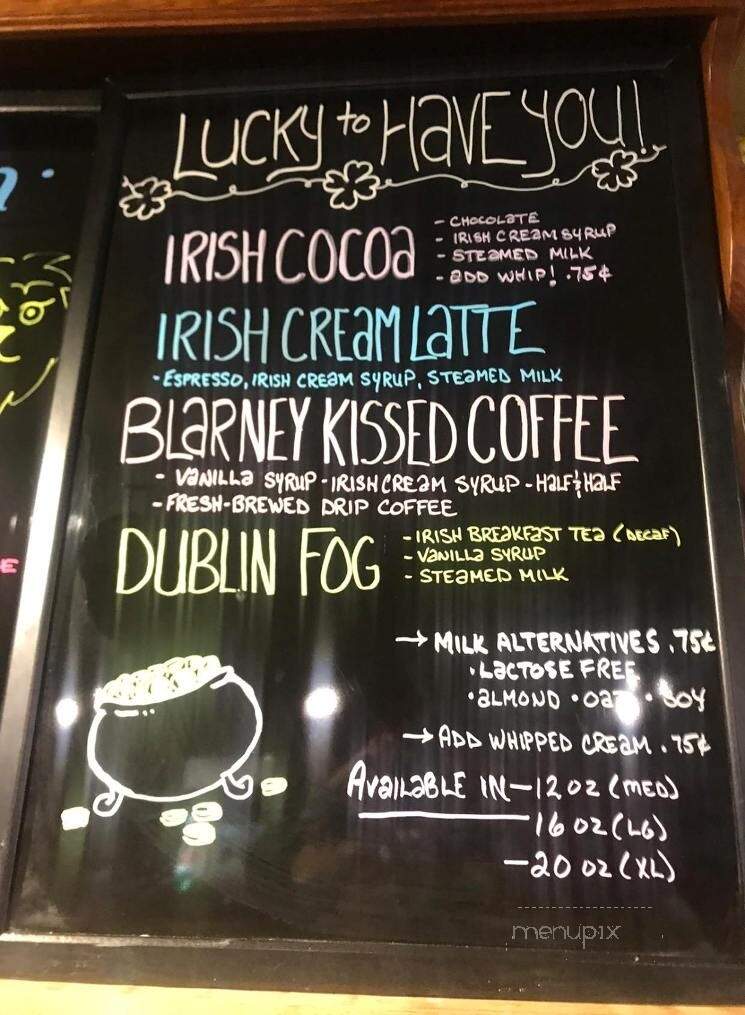 LUCKY to HAVE YOU!
IRISH COCOA
- CHOCOLATE
- IRISH CREAM SYRUP
- STEAMED MILK
- ADD WHIP! .75¢
IRISH CREAM LATTE
- ESPRESSO, IRISH CREAM SYRUP, STEAMED MILK
BLARNEY KISSED COFFEE
- VANILLA SYRUP - IRISH CREAM SYRUP - HALF & HALF
- FRESH-BREWED DRIP COFFEE
DUBLIN FOG
- IRISH BREAKFAST TEA (DECAF)
- VANILLA SYRUP
- STEAMED MILK
→ MILK ALTERNATIVES .75¢
• LACTOSE FREE
• ALMOND • OAT • SOY
→ ADD WHIPPED CREAM .75¢
AVAILABLE IN - 12 OZ (MED)
- 16 OZ (LG)
- 20 OZ (XL)
menupix